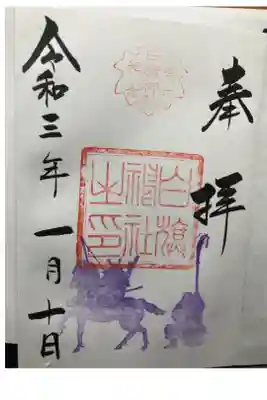 奉拝
白旗
神社
之印
令和三年一月十日